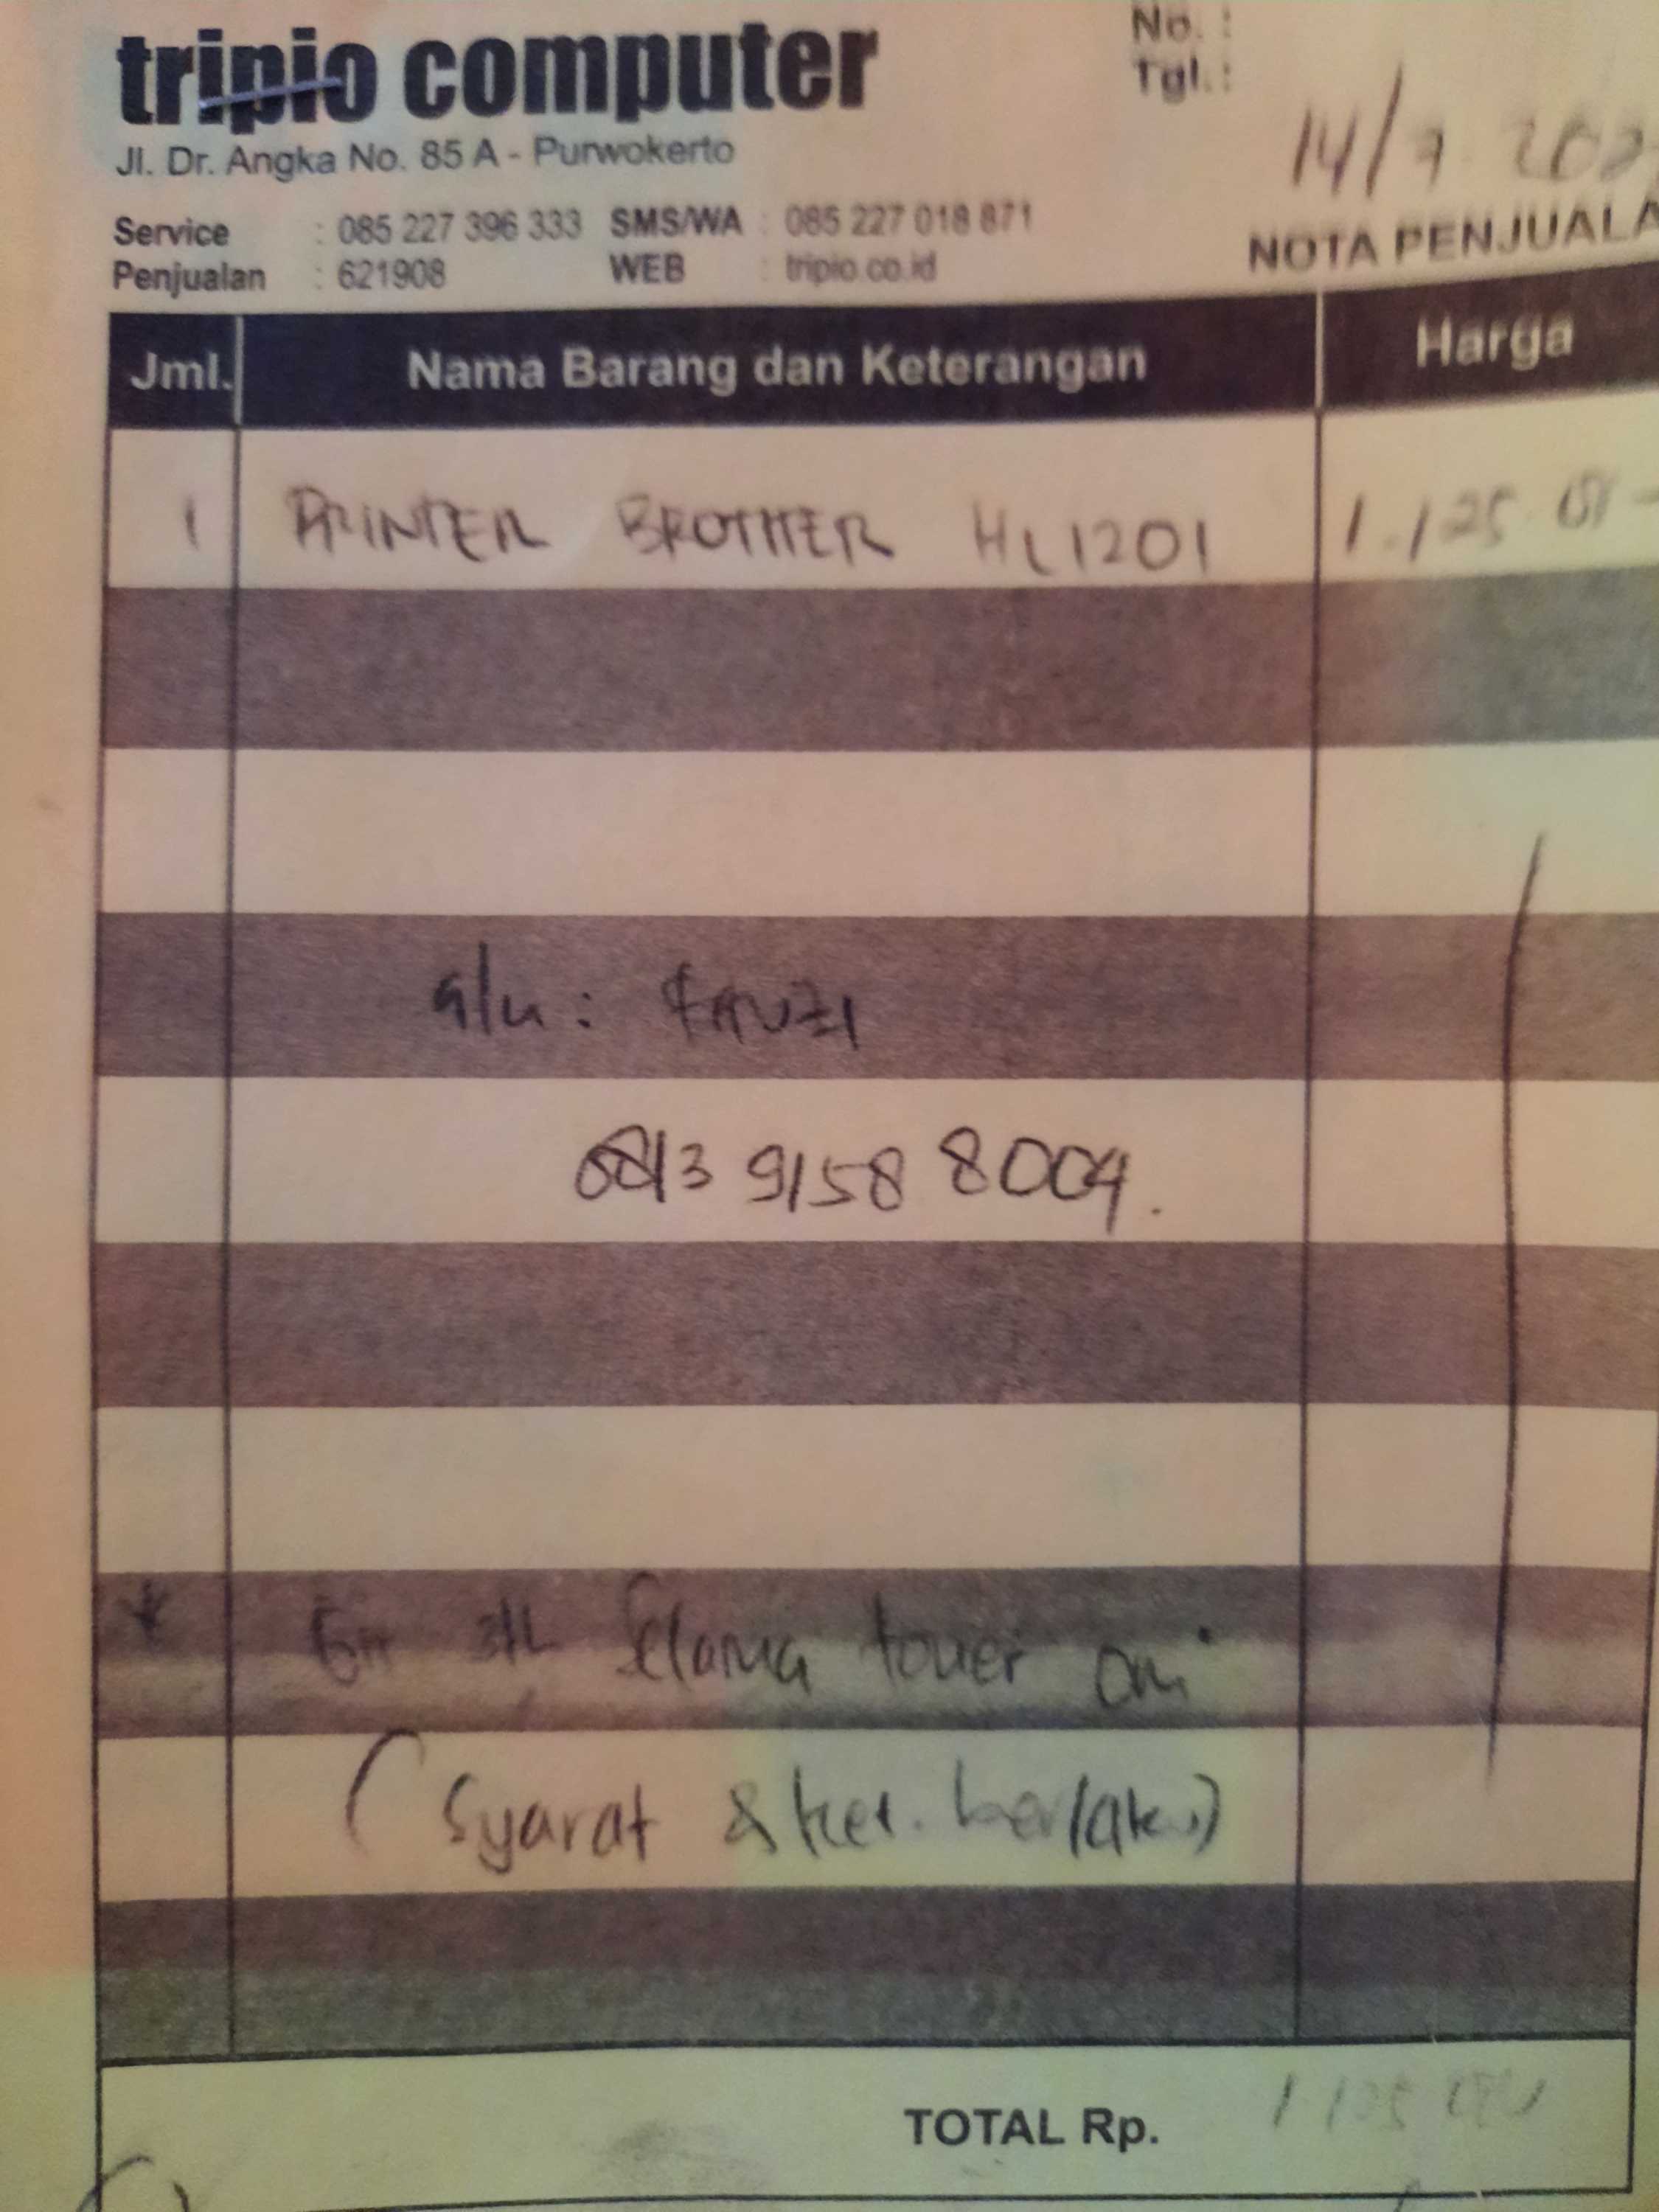 tripio computer
No. :
Tgl. :
14/7
Jl. Dr. Angka No. 85 A - Purwokerto
Service : 085 227 396 333 SMS/WA : 085 227 018 871
Penjualan : 621908 WEB : tripio.co.id
NOTA PENJUALA
Jml. Nama Barang dan Keterangan Harga
1 PRINTER BROTHER HL1201 1.125
a/n : FAUZI
0813 9158 8004.
* Selama toner ori
(Syarat & ket. berlaku)
TOTAL Rp.